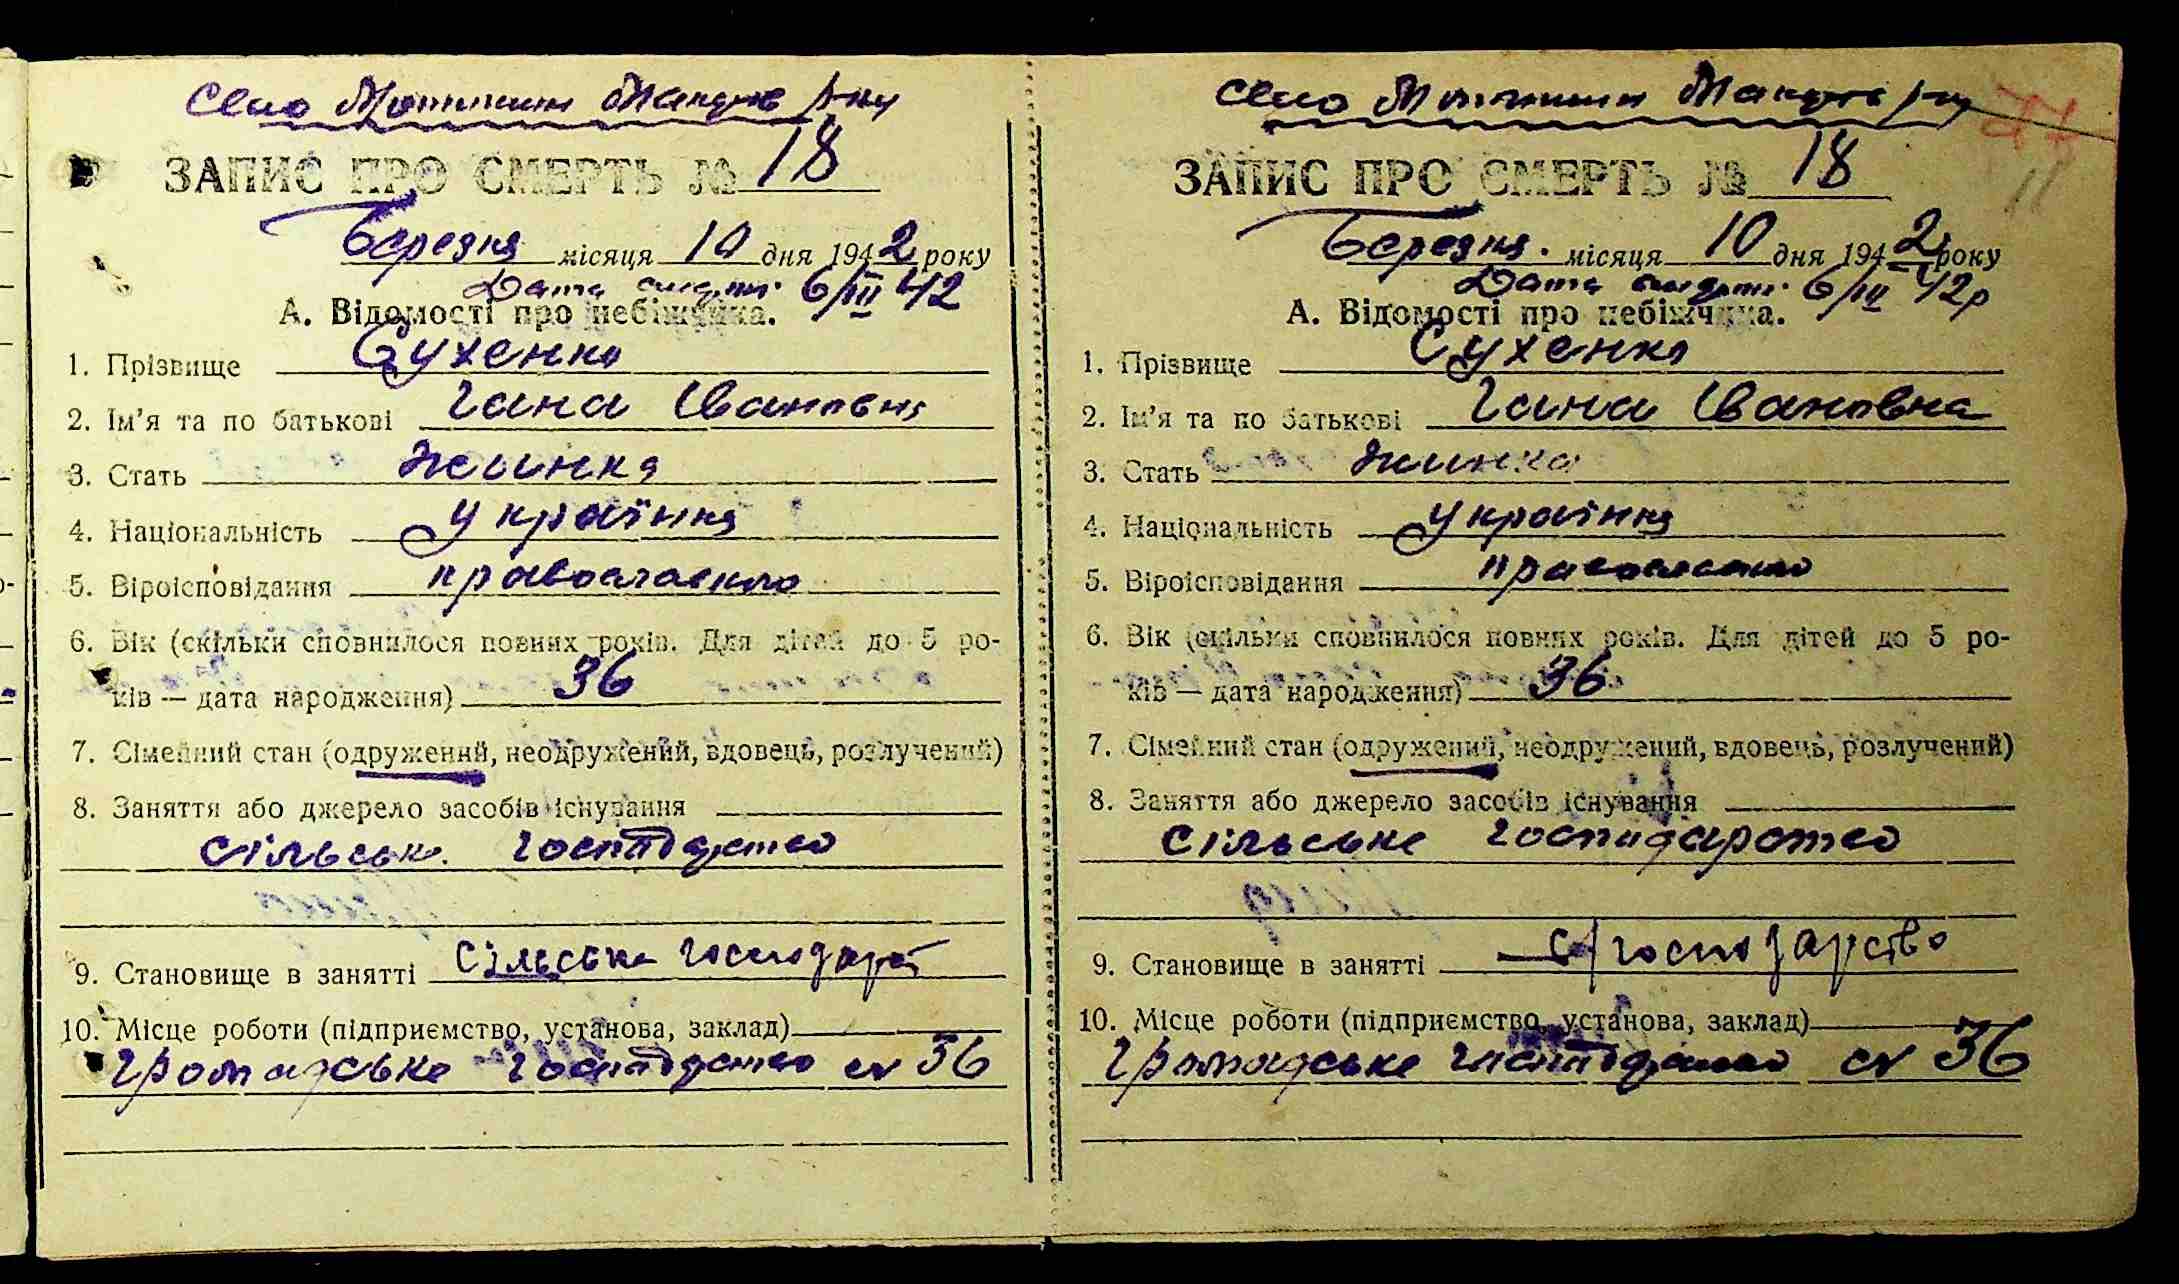 Село Мотижин Макарів р-ну
ЗАПИС ПРО СМЕРТЬ № 18
Березня місяця 10 дня 1942 року
Дата смерти 6/III 42
А. Відомості про небіжчика.
1. Прізвище Сухенко
2. Ім'я та по батькові Гана Івановна
3. Стать жинка
4. Національність українка
5. Віроісповідання православно
6. Вік (скільки сповнилося повних років. Для дітей до 5 ро-
ків — дата народження) 36
7. Сімейний стан (одружений, неодружений, вдовець, розлучений)
8. Заняття або джерело засобів існування
сільськ. господарство
9. Становище в занятті сільське господар
10. Місце роботи (підприємство, установа, заклад)
Громадське господарство 36
Село Мотижин Макарів р-ну
77
11
ЗАПИС ПРО СМЕРТЬ № 18
Березня. місяця 10 дня 1942 року
Дата смерти 6/III 42р
А. Відомості про небіжчика.
1. Прізвище Сухенко
2. Ім'я та по батькові Гана Івановна
3. Стать жинка
4. Національність українка
5. Віроісповідання православно
6. Вік (скільки сповнилося повних років. Для дітей до 5 ро-
ків — дата народження) 36
7. Сімейний стан (одружений, неодружений, вдовець, розлучений)
8. Заняття або джерело засобів існування
сільське господарство
9. Становище в занятті с/господарство
10. Місце роботи (підприємство, установа, заклад)
Громадське господарство 36